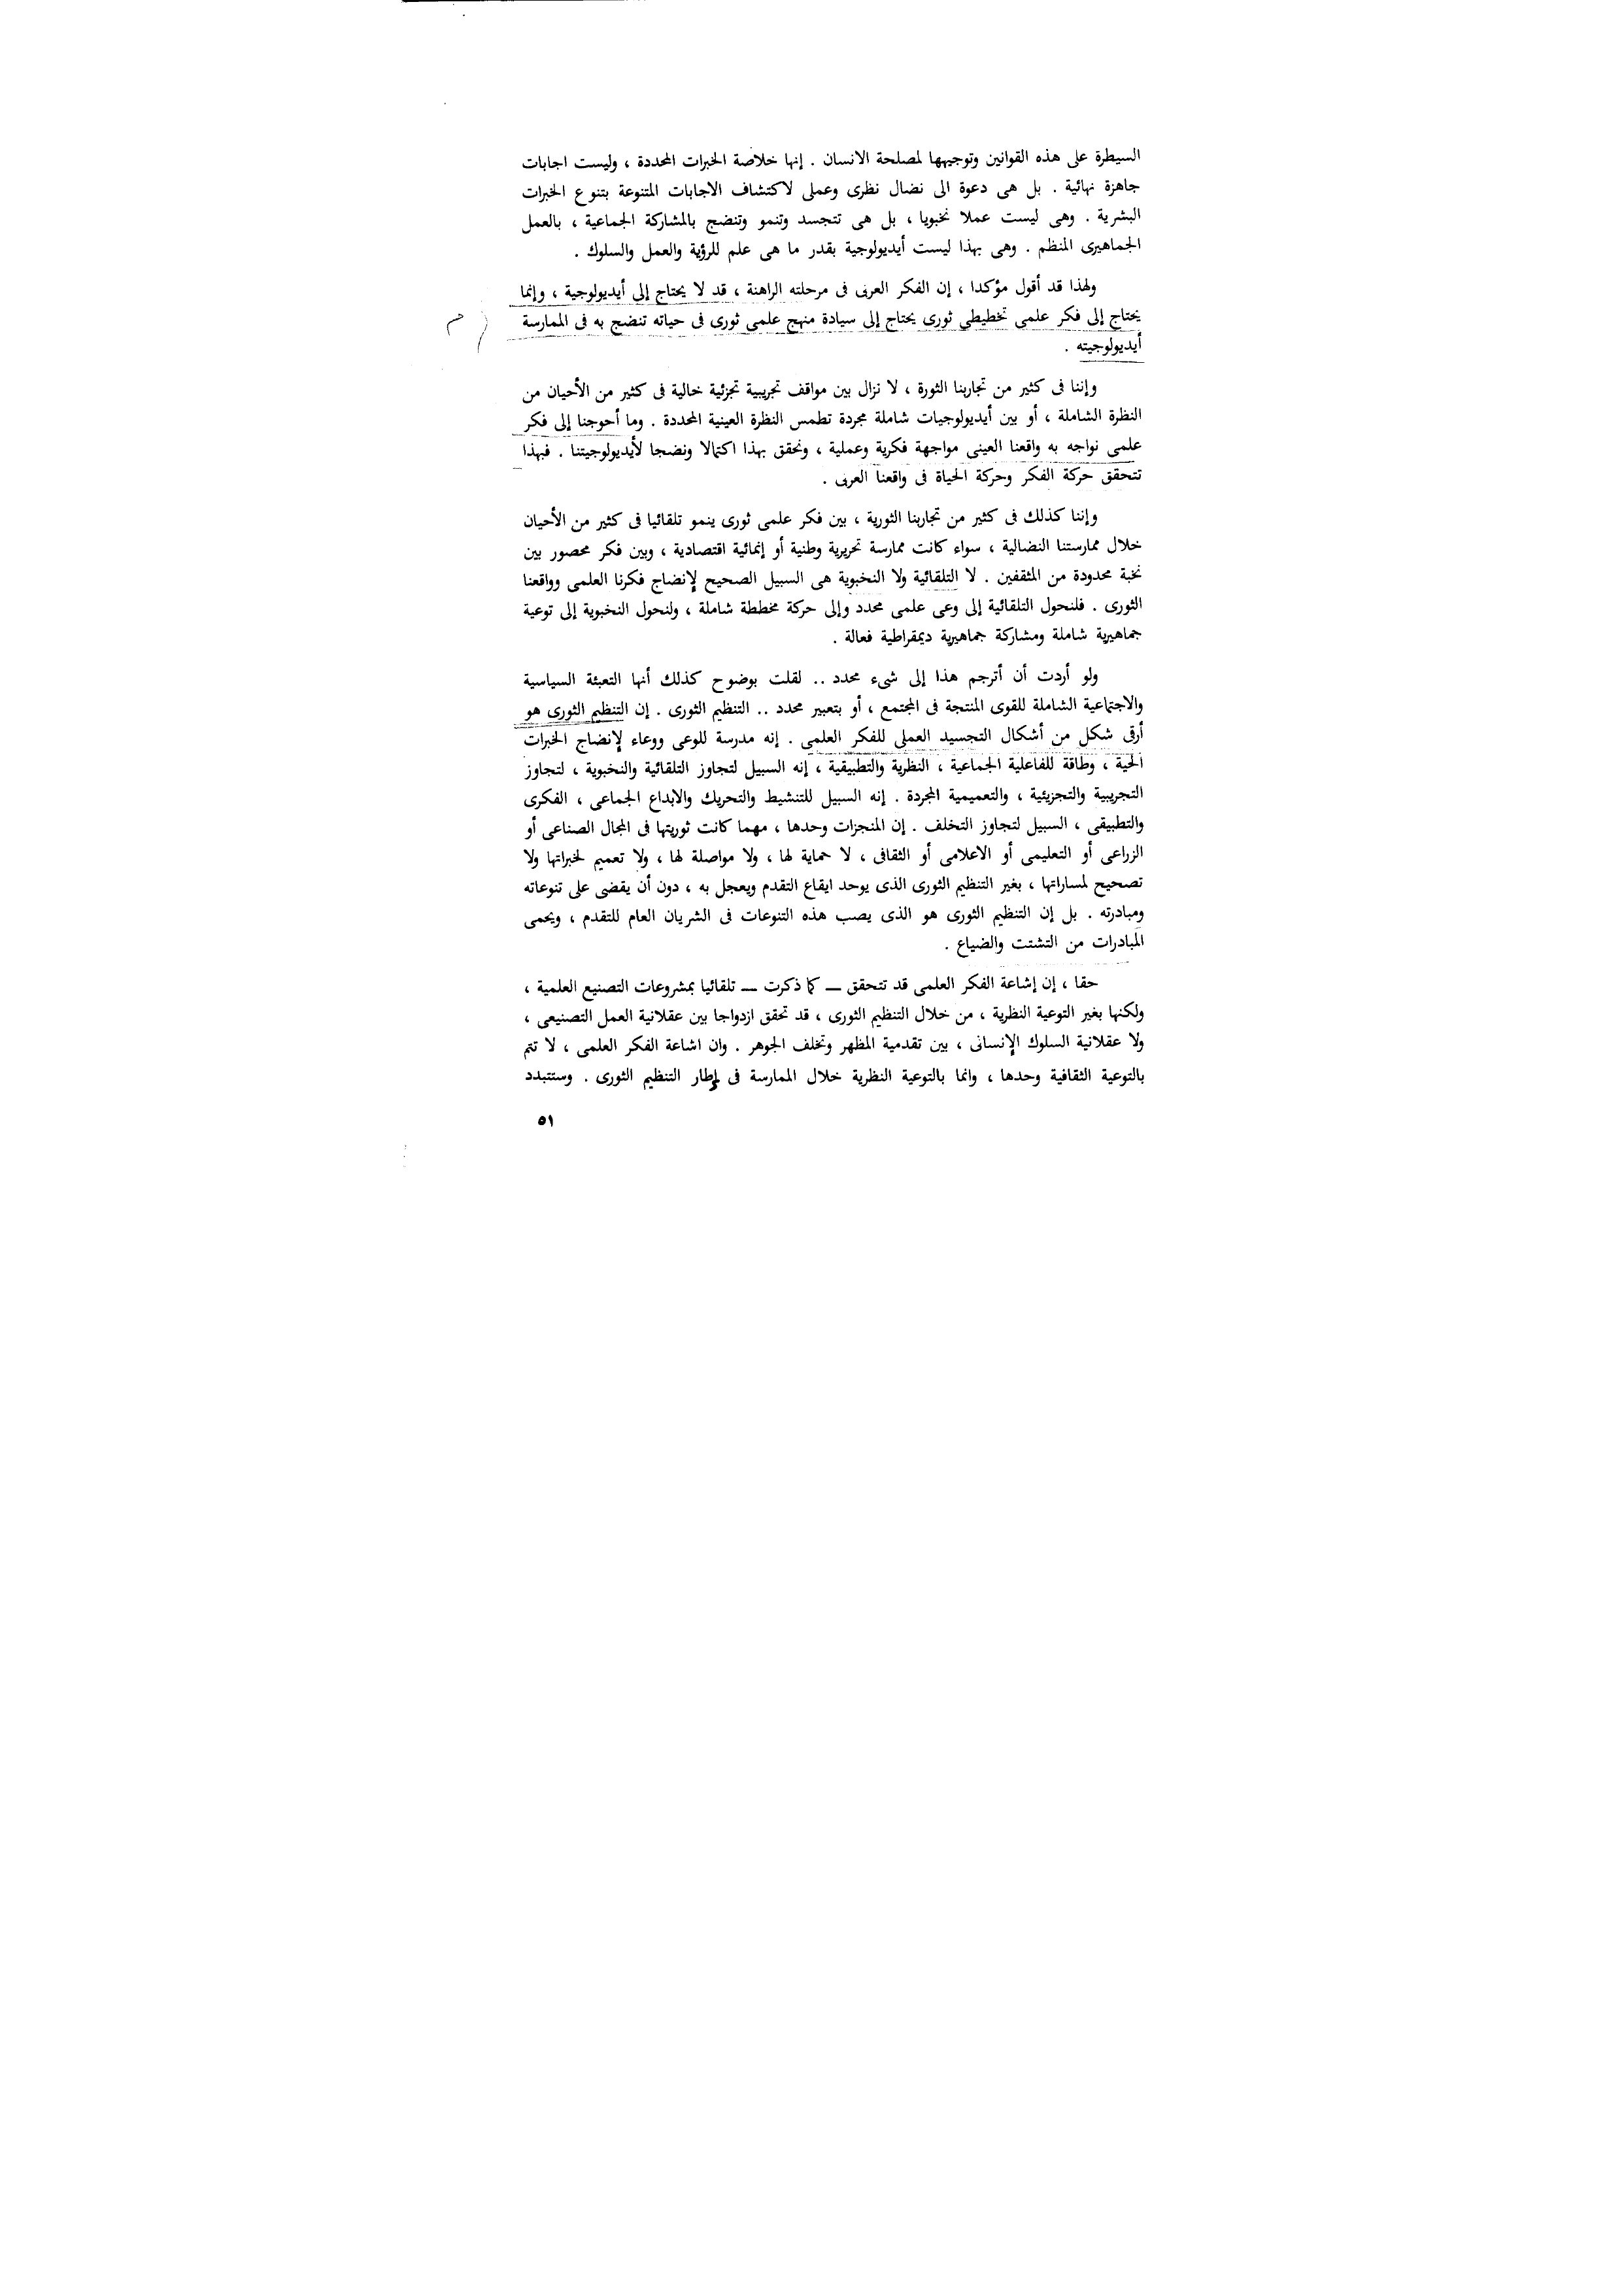 السيطرة على هذه القوانين وتوجيهها لمصلحة الانسان . إنها خلاصة الخبرات المحددة ، وليست اجابات
جاهزة نهائية . بل هى دعوة الى نضال نظرى وعملى لاكتشاف الاجابات المتنوعة بتنوع الخبرات
البشرية . وهى ليست عملا نخبويا ، بل هى تتجسد وتنمو وتنضج بالمشاركة الجماعية ، بالعمل
الجماهيرى المنظم . وهى بهذا ليست أيديولوجية بقدر ما هى علم للرؤية والعمل والسلوك .
ولهذا قد أقول مؤكدا ، إن الفكر العربى فى مرحلته الراهنة ، قد لا يحتاج إلى أيديولوجية ، وإنما
يحتاج إلى فكر علمى تخطيطي ثورى يحتاج إلى سيادة منهج علمى ثورى فى حياته تنضج به فى الممارسة
أيديولوجيته .
وإننا فى كثير من تجاربنا الثورة ، لا نزال بين مواقف تجريبية تجزئية خالية فى كثير من الأحيان من
النظرة الشاملة ، أو بين أيديولوجيات شاملة مجردة تطمس النظرة العينية المحددة . وما أحوجنا إلى فكر
علمى نواجه به واقعنا العينى مواجهة فكرية وعملية ، ونحقق بهذا اكتمالا ونضجا لأيديولوجيتنا . فبهذا
تتحقق حركة الفكر وحركة الحياة فى واقعنا العربى .
وإننا كذلك فى كثير من تجاربنا الثورية ، بين فكر علمى ثورى ينمو تلقائيا فى كثير من الأحيان
خلال ممارستنا النضالية ، سواء كانت ممارسة تحريرية وطنية أو إنمائية اقتصادية ، وبين فكر محصور بين
نخبة محدودة من المثقفين . لا التلقائية ولا النخبوية هى السبيل الصحيح لإنضاج فكرنا العلمى وواقعنا
الثورى . فلنحول التلقائية إلى وعى علمى محدد وإلى حركة مخططة شاملة ، ولنحول النخبوية إلى توعية
جماهيرية شاملة ومشاركة جماهيرية ديمقراطية فعالة .
ولو أردت أن أترجم هذا إلى شىء محدد .. لقلت بوضوح كذلك أنها التعبئة السياسية
والاجتماعية الشاملة للقوى المنتجة فى المجتمع ، أو بتعبير محدد .. التنظيم الثورى . إن التنظيم الثورى هو
أرقى شكل من أشكال التجسيد العملى للفكر العلمى . إنه مدرسة للوعى ووعاء لإنضاج الخبرات
الحية ، وطاقة للفاعلية الجماعية ، النظرية والتطبيقية ، إنه السبيل لتجاوز التلقائية والنخبوية ، لتجاوز
التجريبية والتجزيئية ، والتعميمية المجردة . إنه السبيل للتنشيط والتحريك والابداع الجماعى ، الفكرى
والتطبيقى ، السبيل لتجاوز التخلف . إن المنجزات وحدها ، مهما كانت ثوريتها فى المجال الصناعى أو
الزراعى أو التعليمى أو الاعلامى أو الثقافى ، لا حماية لها ، ولا مواصلة لها ، ولا تعميم لخبراتها ولا
تصحيح لمساراتها ، بغير التنظيم الثورى الذى يوحد ايقاع التقدم ويعجل به ، دون أن يقضى على تنوعاته
ومبادرته . بل إن التنظيم الثورى هو الذى يصب هذه التنوعات فى الشريان العام للتقدم ، ويحمى
المبادرات من التشتت والضياع .
حقا ، إن إشاعة الفكر العلمى قد تتحقق — كما ذكرت — تلقائيا بمشروعات التصنيع العلمية ،
ولكنها بغير التوعية النظرية ، من خلال التنظيم الثورى ، قد تحقق ازدواجا بين عقلانية العمل التصنيعى ،
ولا عقلانية السلوك الإنسانى ، بين تقدمية المظهر وتخلف الجوهر . وان اشاعة الفكر العلمى ، لا تتم
بالتوعية الثقافية وحدها ، وانما بالتوعية النظرية خلال الممارسة فى إطار التنظيم الثورى . وستتبدد
٥١